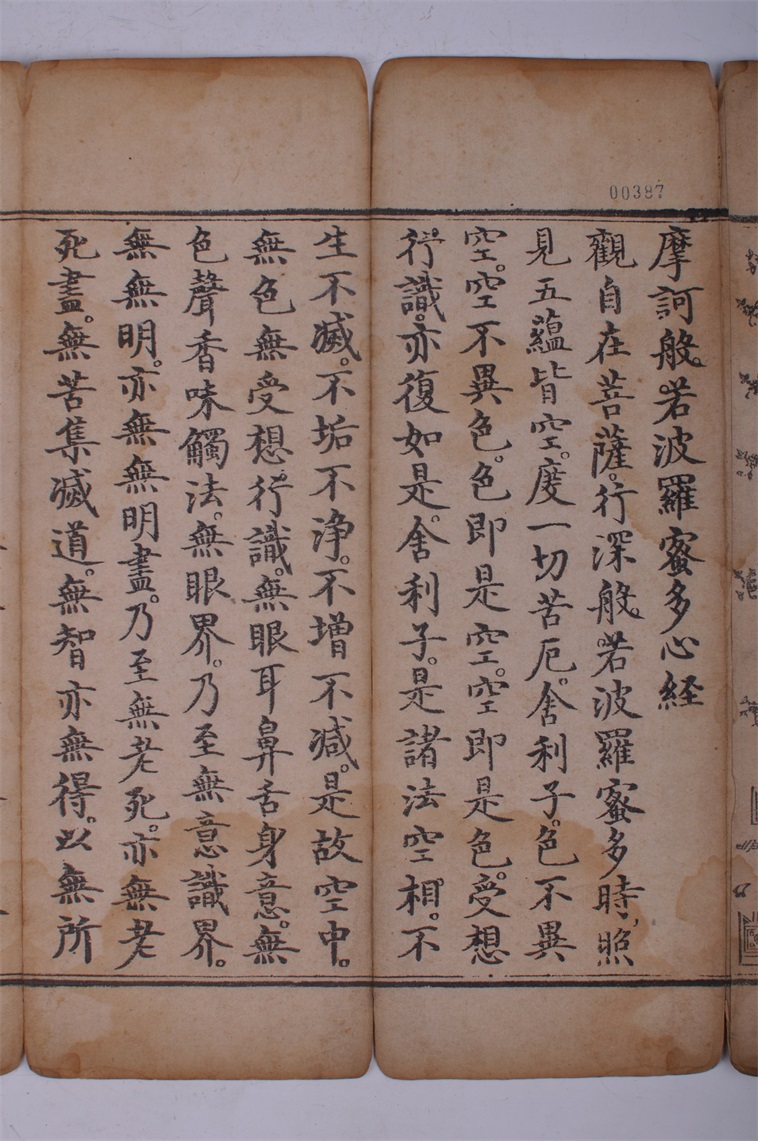 00387
摩訶般若波羅蜜多心経
觀自在菩薩。行深般若波羅蜜多時，照
見五蘊皆空。度一切苦厄。舍利子。色不異
空。空不異色。色即是空。空即是色。受想
行識。亦復如是。舍利子。是諸法空相。不
生不滅。不垢不淨。不增不減。是故空中。
無色無受想行識。無眼耳鼻舌身意。無
色聲香味觸法。無眼界。乃至無意識界。
無無明。亦無無明盡。乃至無老死。亦無老
死盡。無苦集滅道。無智亦無得。以無所